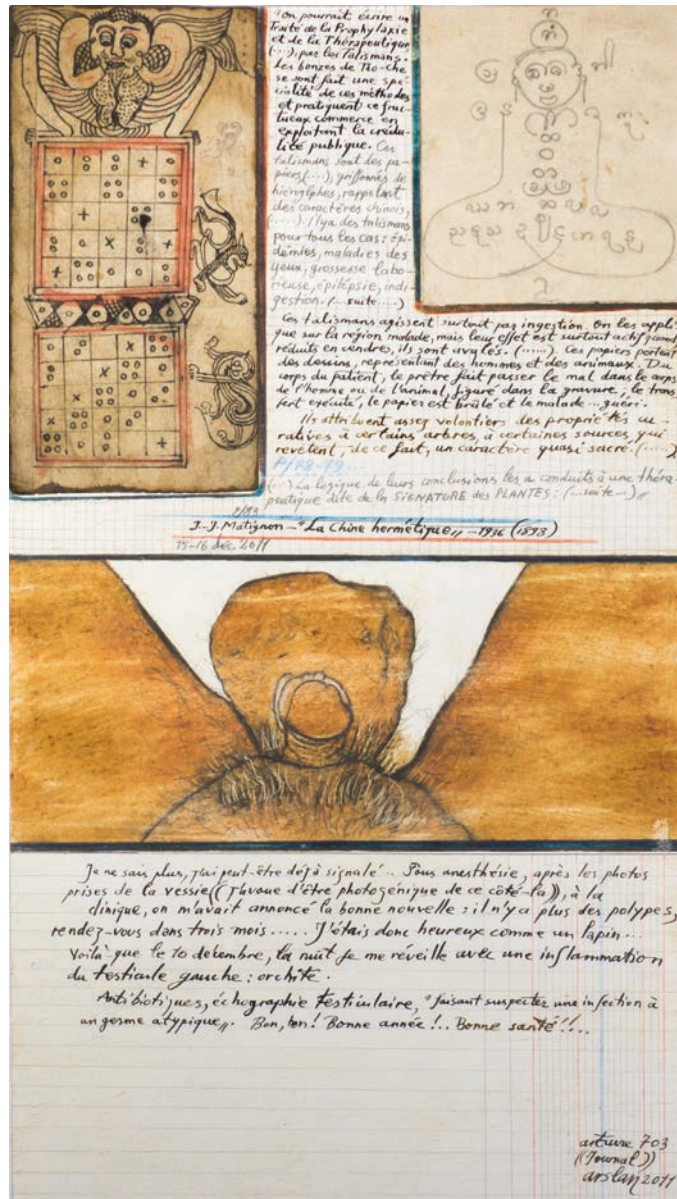 "on pourrait écrire un
Traité de la Prophylaxie
et de la Thérapeutique
(...), par les Talismans.
Les bonzes de Tao-Che
se sont fait une spé-
cialité de ces méthodes
et pratiquent ce fruc-
tueux commerce en
exploitant la crédu-
lité publique. Ces
talismans sont des pa-
piers(....), griffonnés de
hiéroglyphes, rappelant
des caractères chinois,
(....). Il y a des talismans
pour tous les cas: épi-
démies, maladies des
yeux, grossesse labo-
rieuse, épilépsie, indi-
gestion. (....suite....)
Ces talismans agissent surtout par ingestion. On les appli-
que sur la région malade, mais leur effet est surtout actif quand
réduits en cendres, ils sont avalés. (......). Ces papiers portent
des dessins, représentant des hommes et des animaux. Du
corps du patient, le prêtre fait passer le mal dans le corps
de l'homme ou de l'animal, figuré dans la gravure, le trans
fert exécuté, le papier est brûlé et le malade... guéri.
Ils attribuent assez volontiers des propriétés cu-
ratives à certains arbres, à certaines sources, qui
revêtent, de ce fait, un caractère quasi sacré. (.....)
P/18-19...
(...) La logique de leurs conclusions les a conduits à une théra-
peutique dite de la SIGNATURE des PLANTES: (...suite...)"
J.-J. Matignon - "La Chine hermétique" - 1936 (1898)
15-16 déc. 2011
Je ne sais plus, j'ai peut-être déjà signalé... Sous anesthésie, après les photos
prises de la vessie ((J'avoue d'être photogénique de ce côté-là)), à la
clinique, on m'avait annoncé la bonne nouvelle: il n'y a plus des polypes,
rendez-vous dans trois mois..... J'étais donc heureux comme un lapin...
Voilà que le 10 décembre, la nuit je me réveille avec une inflammation
du testicule gauche: orchite.
Antibiotiques, échographie testiculaire, "faisant suspecter une infection à
un germe atypique". Bon, bon! Bonne année!.. Bonne santé!!...
arture 703
((Journal))
arslan 2011